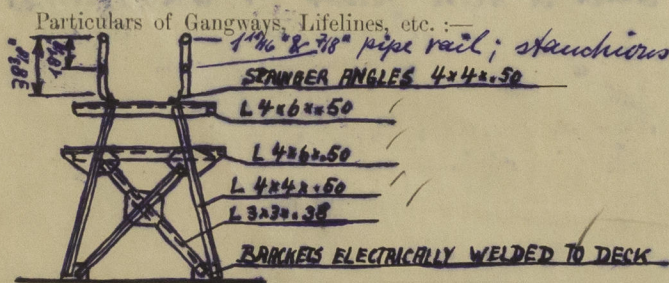 Particulars of Gangways, Lifelines, etc. :—
1 11/16" & 7/8" pipe rail ; stanchions
38 3/8"
STRINGER ANGLES 4×4×.50
L 4×6×.50
L 4×6×.50
L 4×4×.50
L 3×3×.38
BRACKETS ELECTRICALLY WELDED TO DECK